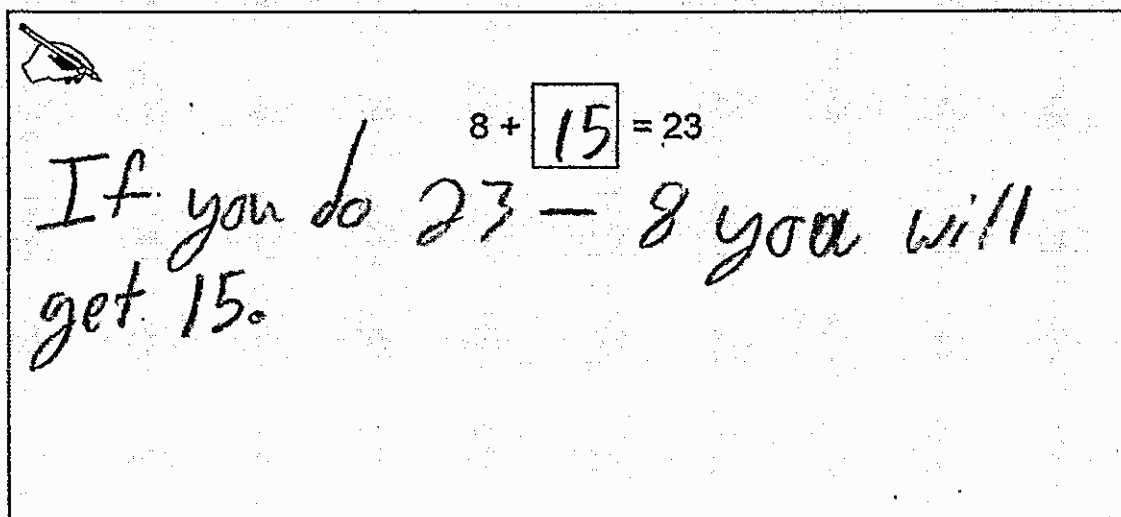 8 + 15 = 23
If you do 23 – 8 you will
get 15.